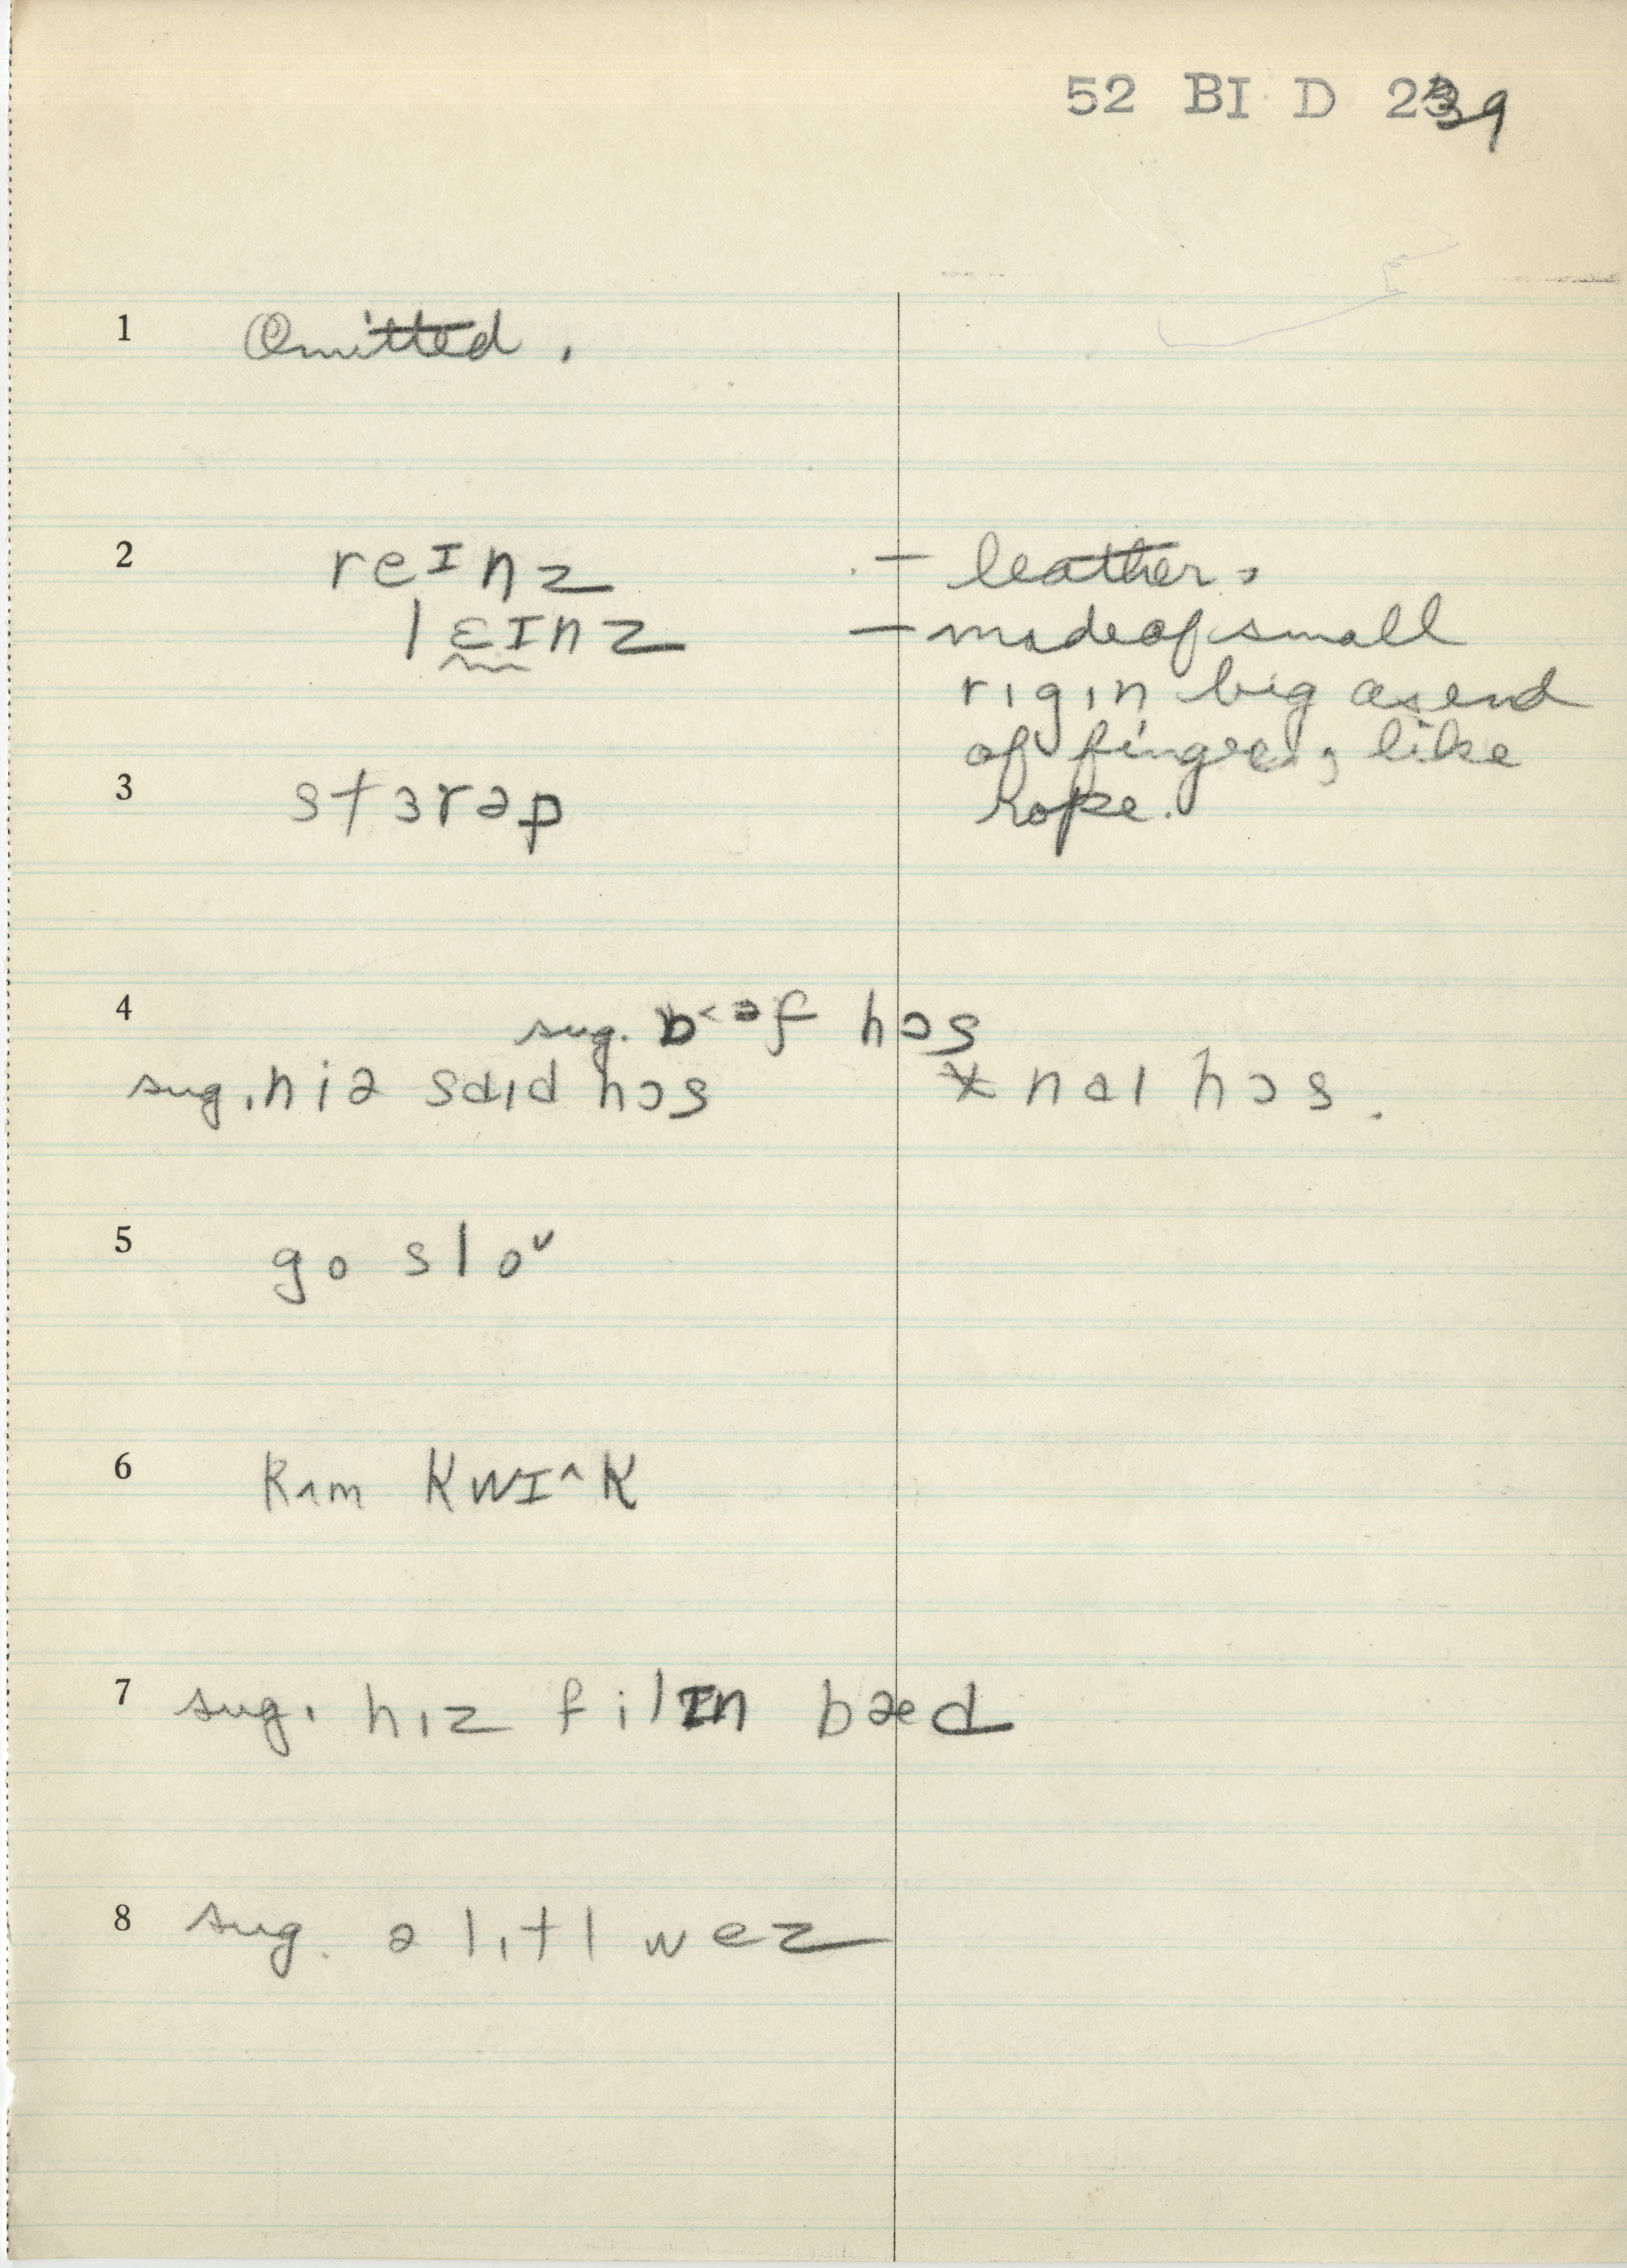 52 BI D 239
1 Omitted.
2 reɪnz — leather.
lɛɪnz — made of small
rıgın big as end
of finger, like
rope.
3 stɜrəp
4 sug. b<əf hɔs
sug. niə saıd hɔs * naı hɔs.
5 go sloᵛ
6 kʌm kwɪ^k
7 sug. hız filɪn bæd
8 sug. ə lıtl wez